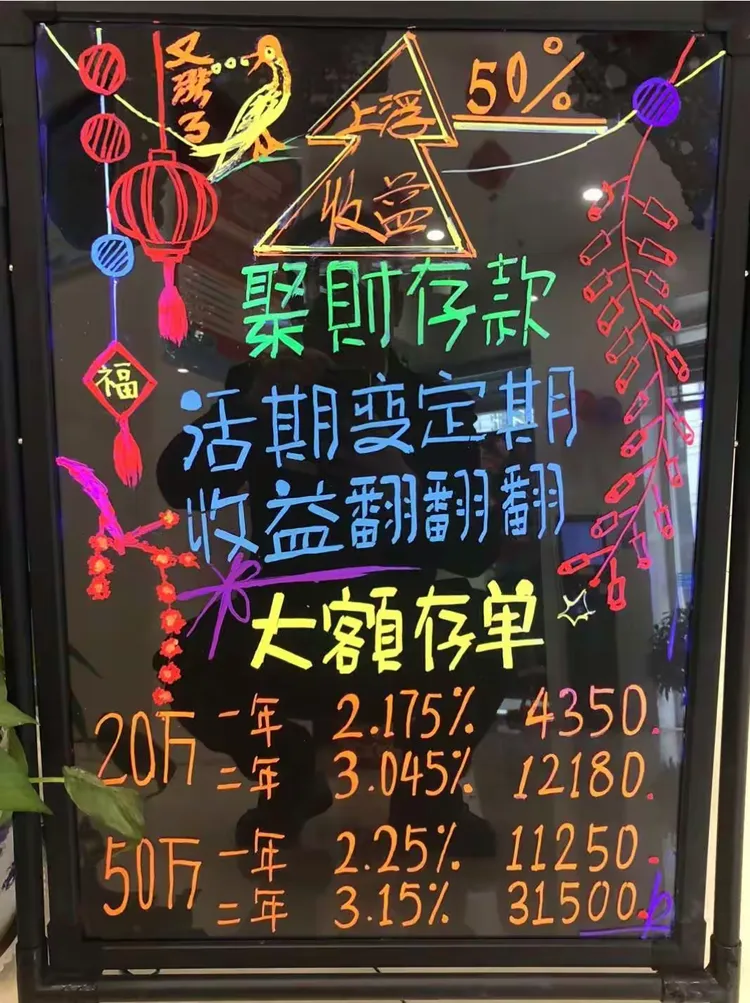 又涨了
上浮 50%
收益
聚財存款
活期变定期
收益翻翻翻
福
大额存单
20万 一年 2.175% 4350.
二年 3.045% 12180.
50万 一年 2.25% 11250.
二年 3.15% 31500.